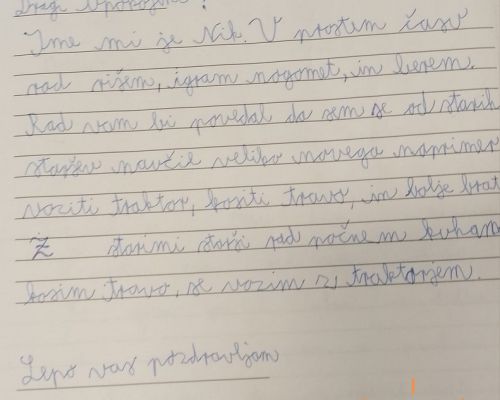 Dragi upokojeni !
Ime mi je Nik. V prostem času
rad rišem, igram nogomet, in berem.
Rad vam bi povedal da sem se od starih
staršev naučil veliko novega naprimer
voziti traktor, kositi travo, in bolje brat
Z starimi starši rad počnem kuham
kosim travo, se vozim z traktorjem.
Lepo vas pozdravljam